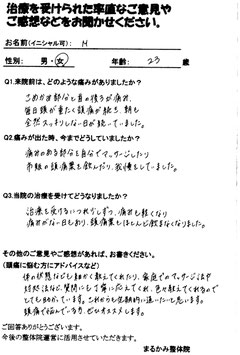 治療を受けられた率直なご意見や
ご感想などをお聞かせください。
お名前(イニシャル可): H
性別: 男・女 年齢: 23 歳
Q1.来院前は、どのような痛みがありましたか?
こめかみ部分と目の後ろが痛み、
毎日頭が重たく頭痛が続き、朝も
全然スッキリしない日が続いていました。
Q2.痛みが出た時、今までどうしていましたか?
痛みのある部分を自分でマッサージしたり
市販の頭痛薬を飲んだり、我慢をしていました。
Q3.当院の治療を受けてどうなりましたか?
治療を受けるにつれ少しずつ、痛みも軽くなり
痛みがない日もあり、頭痛薬もほとんど飲まなくなりました。
その他のご意見やご感想があれば、お書きください。
(頭痛に悩む方にアドバイスなど)
体の状態なども細かく教えてくれたり、家庭でのマッサージ法や
対処法など、質問にも丁寧に応えてくれ、
とても助かっています。これからも定期的に通いたいと思います。
頭痛で悩んでいる方、ぜひオススメします。
ご回答ありがとうございます。
今後の整体院運営に活用させていただきます。
まるかみ整体院